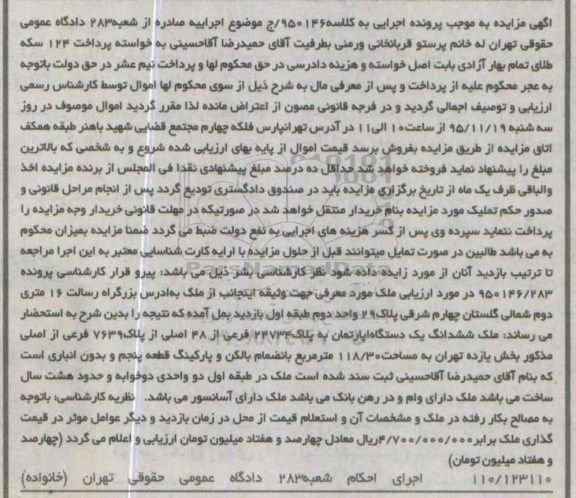 آگهی مزایده به موجب پرونده اجرایی به کلاسه۹۵۰۱۴۶/ج موضوع اجراییه صادره از شعبه۲۸۳ دادگاه عمومی
حقوقی تهران له خانم پرستو قربانخانی ورمنی بطرفیت آقای حمیدرضا آقاحسینی به خواسته پرداخت ۱۲۴ سکه
طلای تمام بهار آزادی بابت اصل خواسته و هزینه دادرسی در حق محکوم لها و پرداخت نیم عشر در حق دولت باتوجه
به عجر محکوم علیه از پرداخت و پس از معرفی مال به شرح ذیل از سوی محکوم لها اموال توسط کارشناس رسمی
ارزیابی و توصیف اجمالی گردید و در فرجه قانونی مصون از اعتراض مانده لذا مقرر گردید اموال موصوف در روز
سه شنبه ۹۵/۱۱/۱۹ از ساعت۱۰ الی۱۱ در آدرس تهرانپارس فلکه چهارم مجتمع قضایی شهید باهنر طبقه همکف
اتاق مزایده از طریق مزایده بفروش برسد قیمت اموال از پایه بهای ارزیابی شده شروع و به شخصی که بالاترین
مبلغ را پیشنهاد نماید فروخته خواهد شد حداقل ده درصد مبلغ پیشنهادی نقدا فی المجلس از برنده مزایده اخذ
والباقی ظرف یک ماه از تاریخ برگزاری مزایده باید در صندوق دادگستری تودیع گردد پس از انجام مراحل قانونی و
صدور حکم تملیک مورد مزایده بنام خریدار منتقل خواهد شد در صورتیکه در مهلت قانونی خریدار وجه مزایده را
پرداخت ننماید سپرده وی پس از کسر هزینه های اجرایی به نفع دولت ضبط می گردد ضمنا مزایده بمیزان محکوم
به می باشد طالبین در صورت تمایل میتوانند قبل از حلول مزایده با ارایه کارت شناسایی معتبر به این اجرا مراجعه
تا ترتیب بازدید آنان از مورد زایده داده شود نظر کارشناس بشر ذیل می باشد: پیرو قرار کارشناسی پرونده
۹۵۰۱۴۶/۲۸۳ در مورد ارزیابی ملک مورد معرفی جهت وثیقه اینجانب از ملک به‌ادرس بزرگراه رسالت ۱۶ متری
دوم شمالی گلستان چهارم شرقی پلاک۲۹ واحد دوم طبقه اول بازدید بمل آمده که نتیجه را بدین شرح به استحضار
می رساند: ملک ششدانگ یک دستگاه‌اپارتمان به پلاک۲۴۷۳۴ فرعی از ۴۸ اصلی از پلاک۷۶۳۹ فرعی از اصلی
مذکور بخش یازده تهران به مساحت۱۱۸/۳۰ مترمربع بانضمام بالکن و پارکینگ قطعه پنجم و بدون انباری است
که بنام آقای حمیدرضا آقاحسینی ثبت سند شده است ملک در طبقه اول دو واحدی دوخوابه و حدود هشت سال
ساخت می باشد ملک دارای وام و در رهن بانک می باشد ملک دارای آسانسور می باشد. نظریه کارشناسی: باتوجه
به مصالح بکار رفته در ملک و مشخصات آن و استعلام قیمت از محل در زمان بازدید و دیگر عوامل موثر در قیمت
گذاری ملک برابر۴/۷۰۰/۰۰۰/۰۰۰ریال معادل چهارصد و هفتاد میلیون تومان ارزیابی و اعلام می گردد (چهارصد
و هفتاد میلیون تومان)
۱۱۰/۱۲۳۱۱۰ اجرای احکام شعبه۲۸۳ دادگاه عمومی حقوقی تهران (خانواده)